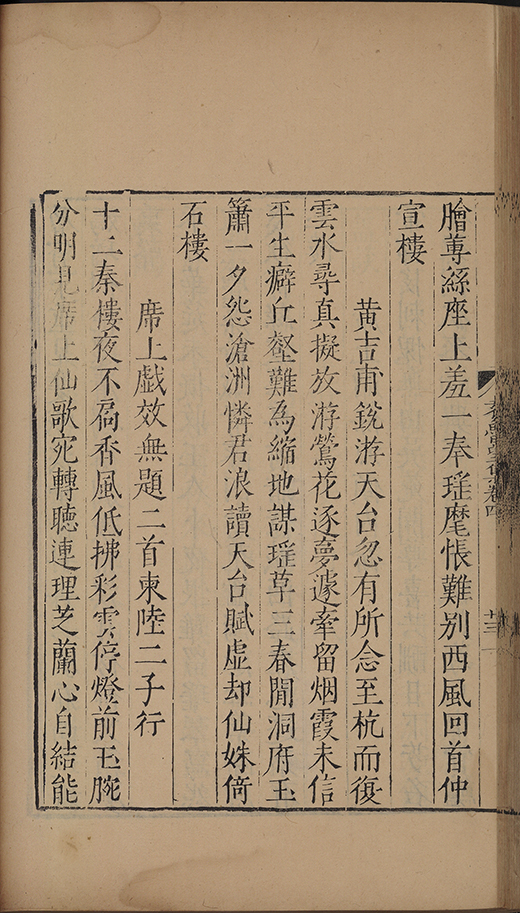 膾蓴絲座上羞一奉瑶麾悵難别西風回首仲
宣樓
黄吉甫銳游天台忽有所念至杭而復
雲水尋真擬放游鶯花逐夢遽牽留烟霞未信
平生癖丘壑難為縮地謀瑶草三春閒洞府玉
簫一夕怨滄洲憐君浪讀天台賦虛却仙姝倚
石樓
席上戯效無題二首柬陸二子行
十二秦樓夜不扃香風低拂彩雲停燈前玉腕
分明見席上仙歌宛轉聽連理芝蘭心自結能
卷四
廿三